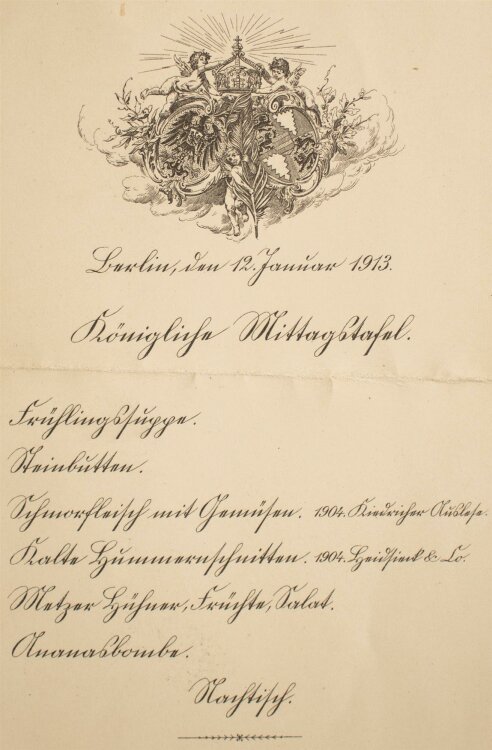 Berlin, den 12. Januar 1913.
Königliche Mittagstafel.
Frühlingssuppe.
Steinbutten.
Schmorfleisch mit Gemüsen. 1904. Kiedricher Auslese.
Kalte Hummernschnitten. 1904. Heidsieck & Co.
Metzer Hühner, Früchte, Salat.
Ananasbombe.
Nachtisch.